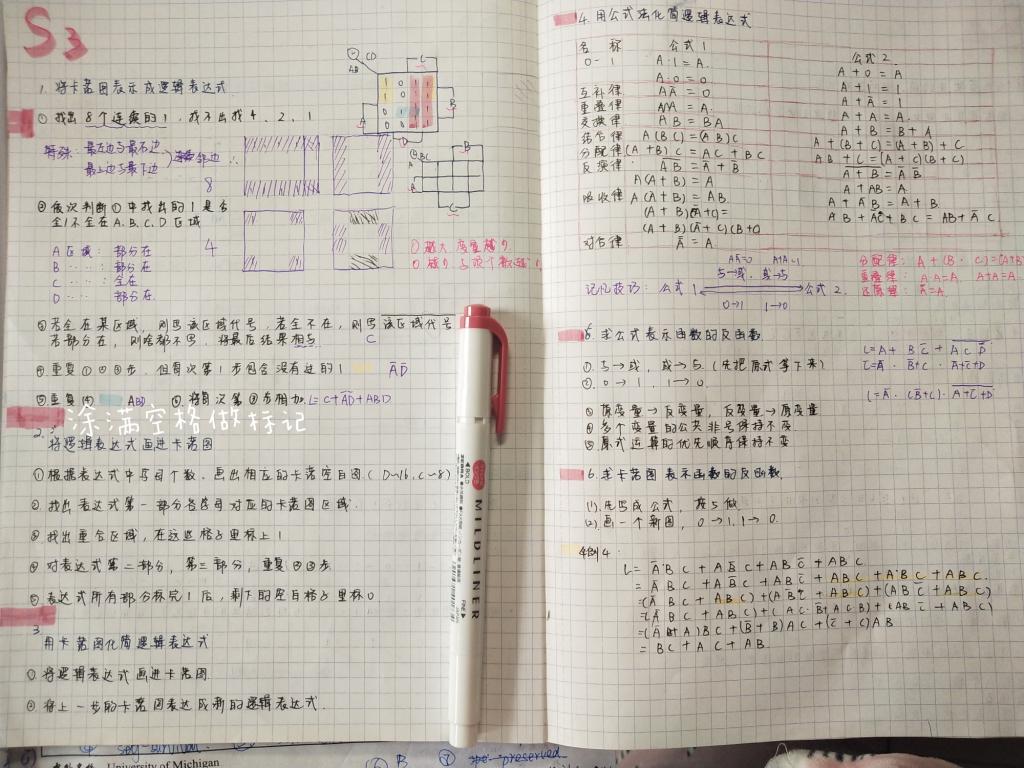 S3
1. 将卡诺图表示成逻辑表达式
① 找出8个连续的1，找不出找4、2、1
特殊：最左边与最右边
最上边与最下边
邻边
8
CD
AB
C
B
A
D
BC
B
A
C
② 依次判断①中找出的1是否
全/不全在A、B、C、D区域
4
A区域：部分在
B ‥‥：部分在
C ‥‥：全在
D ‥‥：部分在
① 越大 变量越少
③ 若全在某区域，则写该区域代号，若全不在，则写该区域代号
若部分在，则啥都不写，将最后结果相与
C
④ 重复①②③步，但每次第1步包含没有选的1
A̅D̅
⑤ 重复④
ABD
⑥ 将每次第③步相加
涂满空格做标记
2.
将逻辑表达式画进卡诺图
① 根据表达式中字母个数，画出相应的卡诺空白图（D~16，C~8）
② 找出表达式第一部分各字母对应的卡诺图区域
③ 找出重合区域，在这些格子里标上1
④ 对表达式第二部分，第三部分，重复②③步
⑤ 表达式所有部分标完1后，剩下的空白格子里标0
3.
用卡诺图化简逻辑表达式
① 将逻辑表达式画进卡诺图
② 将上一步的卡诺图表达成新的逻辑表达式
4. 用公式法化简逻辑表达式
名 称 公式1 公式2
0-1 A·1=A A+0=A
A·0=0 A+1=1
互补律 AA̅=0 A+A̅=1
重叠律 AA=A A+A=A
交换律 AB=BA A+B=B+A
结合律 A(BC)=(AB)C A+(B+C)=(A+B)+C
分配律 (A+B)C=AC+BC AB+C=(A+C)(B+C)
反演律
吸收律 A(A+B)=A A+AB=A
A(A̅+B)=AB A+A̅B=A+B
AB+A̅C+BC=AB+A̅C
对合律
AA̅=0 A+A̅=1
与→或，或→与
记忆技巧：公式1 公式2
0→1 1→0
分配律：A+(B·C)=(A+B)
重叠律：A·A=A A+A=A
还原律：
5. 求公式表示函数的反函数
① 与→或，或→与（先把原式拿下来）
② 0→1，1→0
③ 原变量→反变量，反变量→原变量
④ 多个变量的公共非号保持不变
⑤ 原式运算的优先顺序保持不变
6. 求卡诺图表示函数的反函数
(1) 先写成公式，按5做
(2) 画一个新图，0→1，1→0
例4
L=A̅BC+AB̅C+ABC̅+ABC
=A̅BC+AB̅C+ABC̅+ABC+ABC+ABC
=(A̅BC+ABC)+(AB̅C+ABC)+(ABC̅+ABC)
=(A̅BC+ABC)+(ACB̅+ACB)+(ABC̅+ABC)
=(A̅+A)BC+(B̅+B)AC+(C̅+C)AB
=BC+AC+AB
MILDLINER
BOLD
FINE
University of Michigan
B
preserved